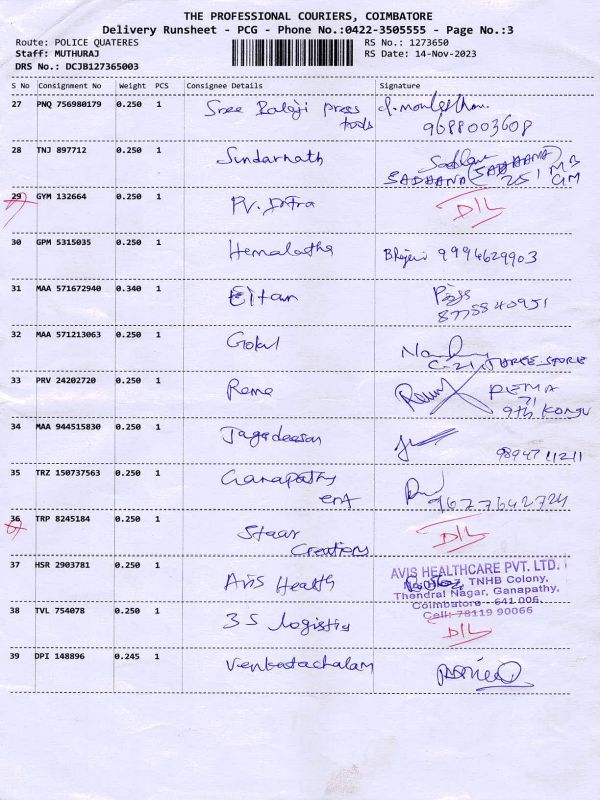 THE PROFESSIONAL COURIERS, COIMBATORE
Delivery Runsheet - PCG - Phone No.:0422-3505555 - Page No.:3
Route: POLICE QUATERES
Staff: MUTHURAJ
DRS No.: DCJB127365003
RS No.: 1273650
RS Date: 14-Nov-2023
S No Consignment No Weight PCS Consignee Details Signature
27 PNQ 756980179 0.250 1 Sree Balaji press
tools
9688003608
28 TNJ 897712 0.250 1 Sundarnath
(SADHANA)
SADHANA
29 GYM 132664 0.250 1 D/L
30 GPM 5315035 0.250 1 Hemalatha 9994629903
31 MAA 571672940 0.340 1 Eitan
8775540951
32 MAA 571213063 0.250 1 Gokul
C-21, THREE STORE
33 PRV 24202720 0.250 1 Rema REMA
71
9th KONGU
34 MAA 944515830 0.250 1 Jagadeesan
9894711211
35 TRZ 150737563 0.250 1 Ganapathy
ent
9677642724
36 TRP 8245184 0.250 1 Staar
Creations
D/L
37 HSR 2903781 0.250 1 Avis Health
AVIS HEALTHCARE PVT. LTD.
TNHB Colony,
Thendral Nagar, Ganapathy,
Coimbatore - 641 006.
Cell: 78119 90066
38 TVL 754078 0.250 1 3S logistis
D/L
39 DPI 148896 0.245 1 Venkatachalam